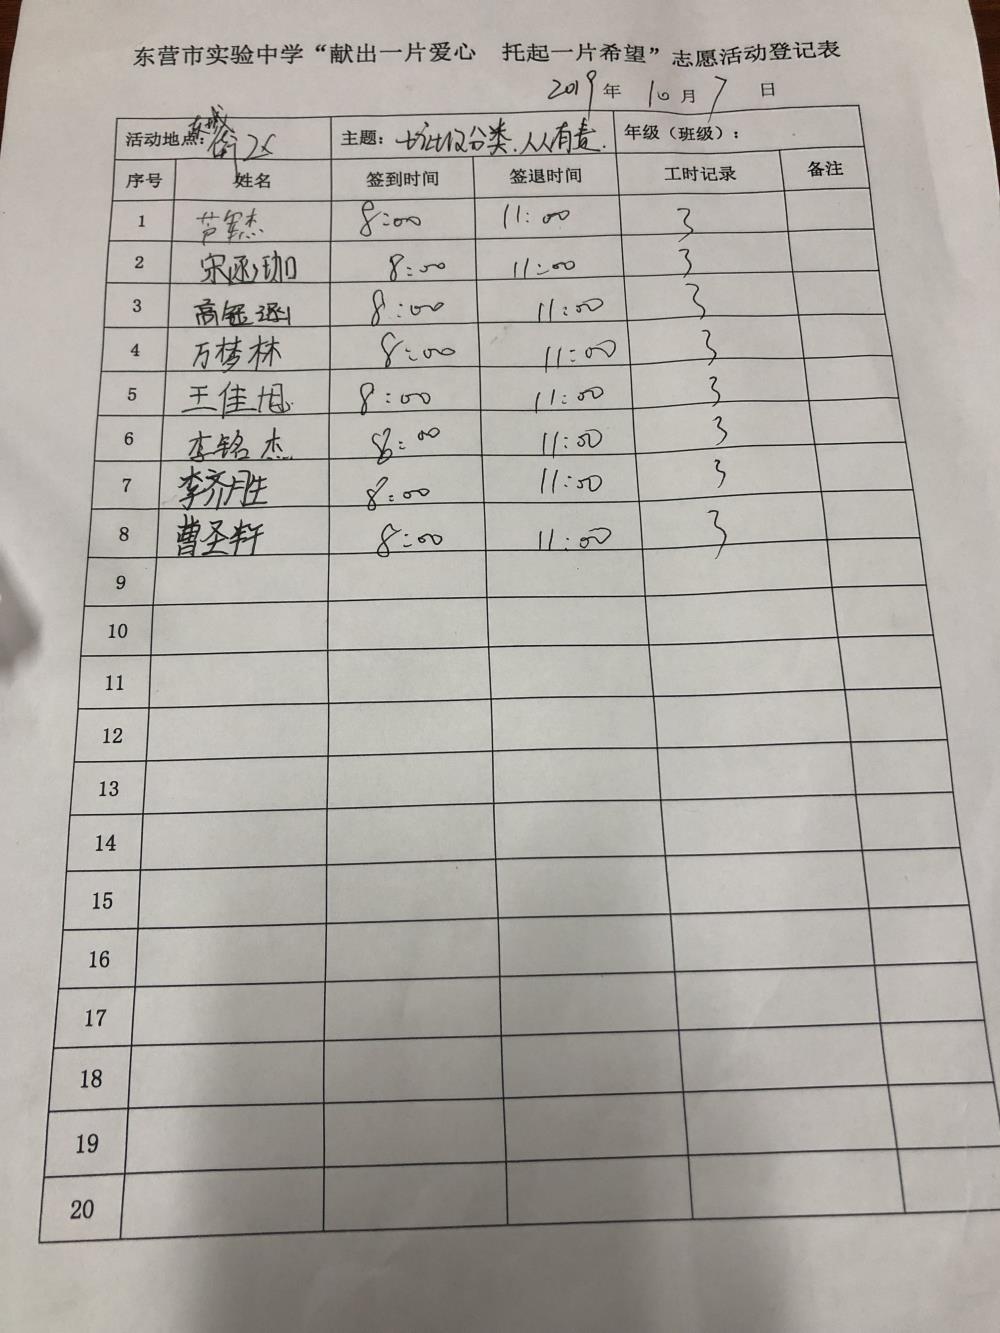 东营市实验中学“献出一片爱心 托起一片希望”志愿活动登记表
2019年10月7日
活动地点：东城 主题：垃圾分类.人人有责. 年级（班级）：
序号 姓名 签到时间 签退时间 工时记录 备注
1 芦军杰 8:00 11:00 3
2 宋函珈 8:00 11:00 3
3 高 8:00 11:00 3
4 万梦林 8:00 11:00 3
5 王佳旭 8:00 11:00 3
6 李铭杰 8:00 11:00 3
7 李齐胜 8:00 11:00 3
8 曹圣轩 8:00 11:00 3
9
10
11
12
13
14
15
16
17
18
19
20